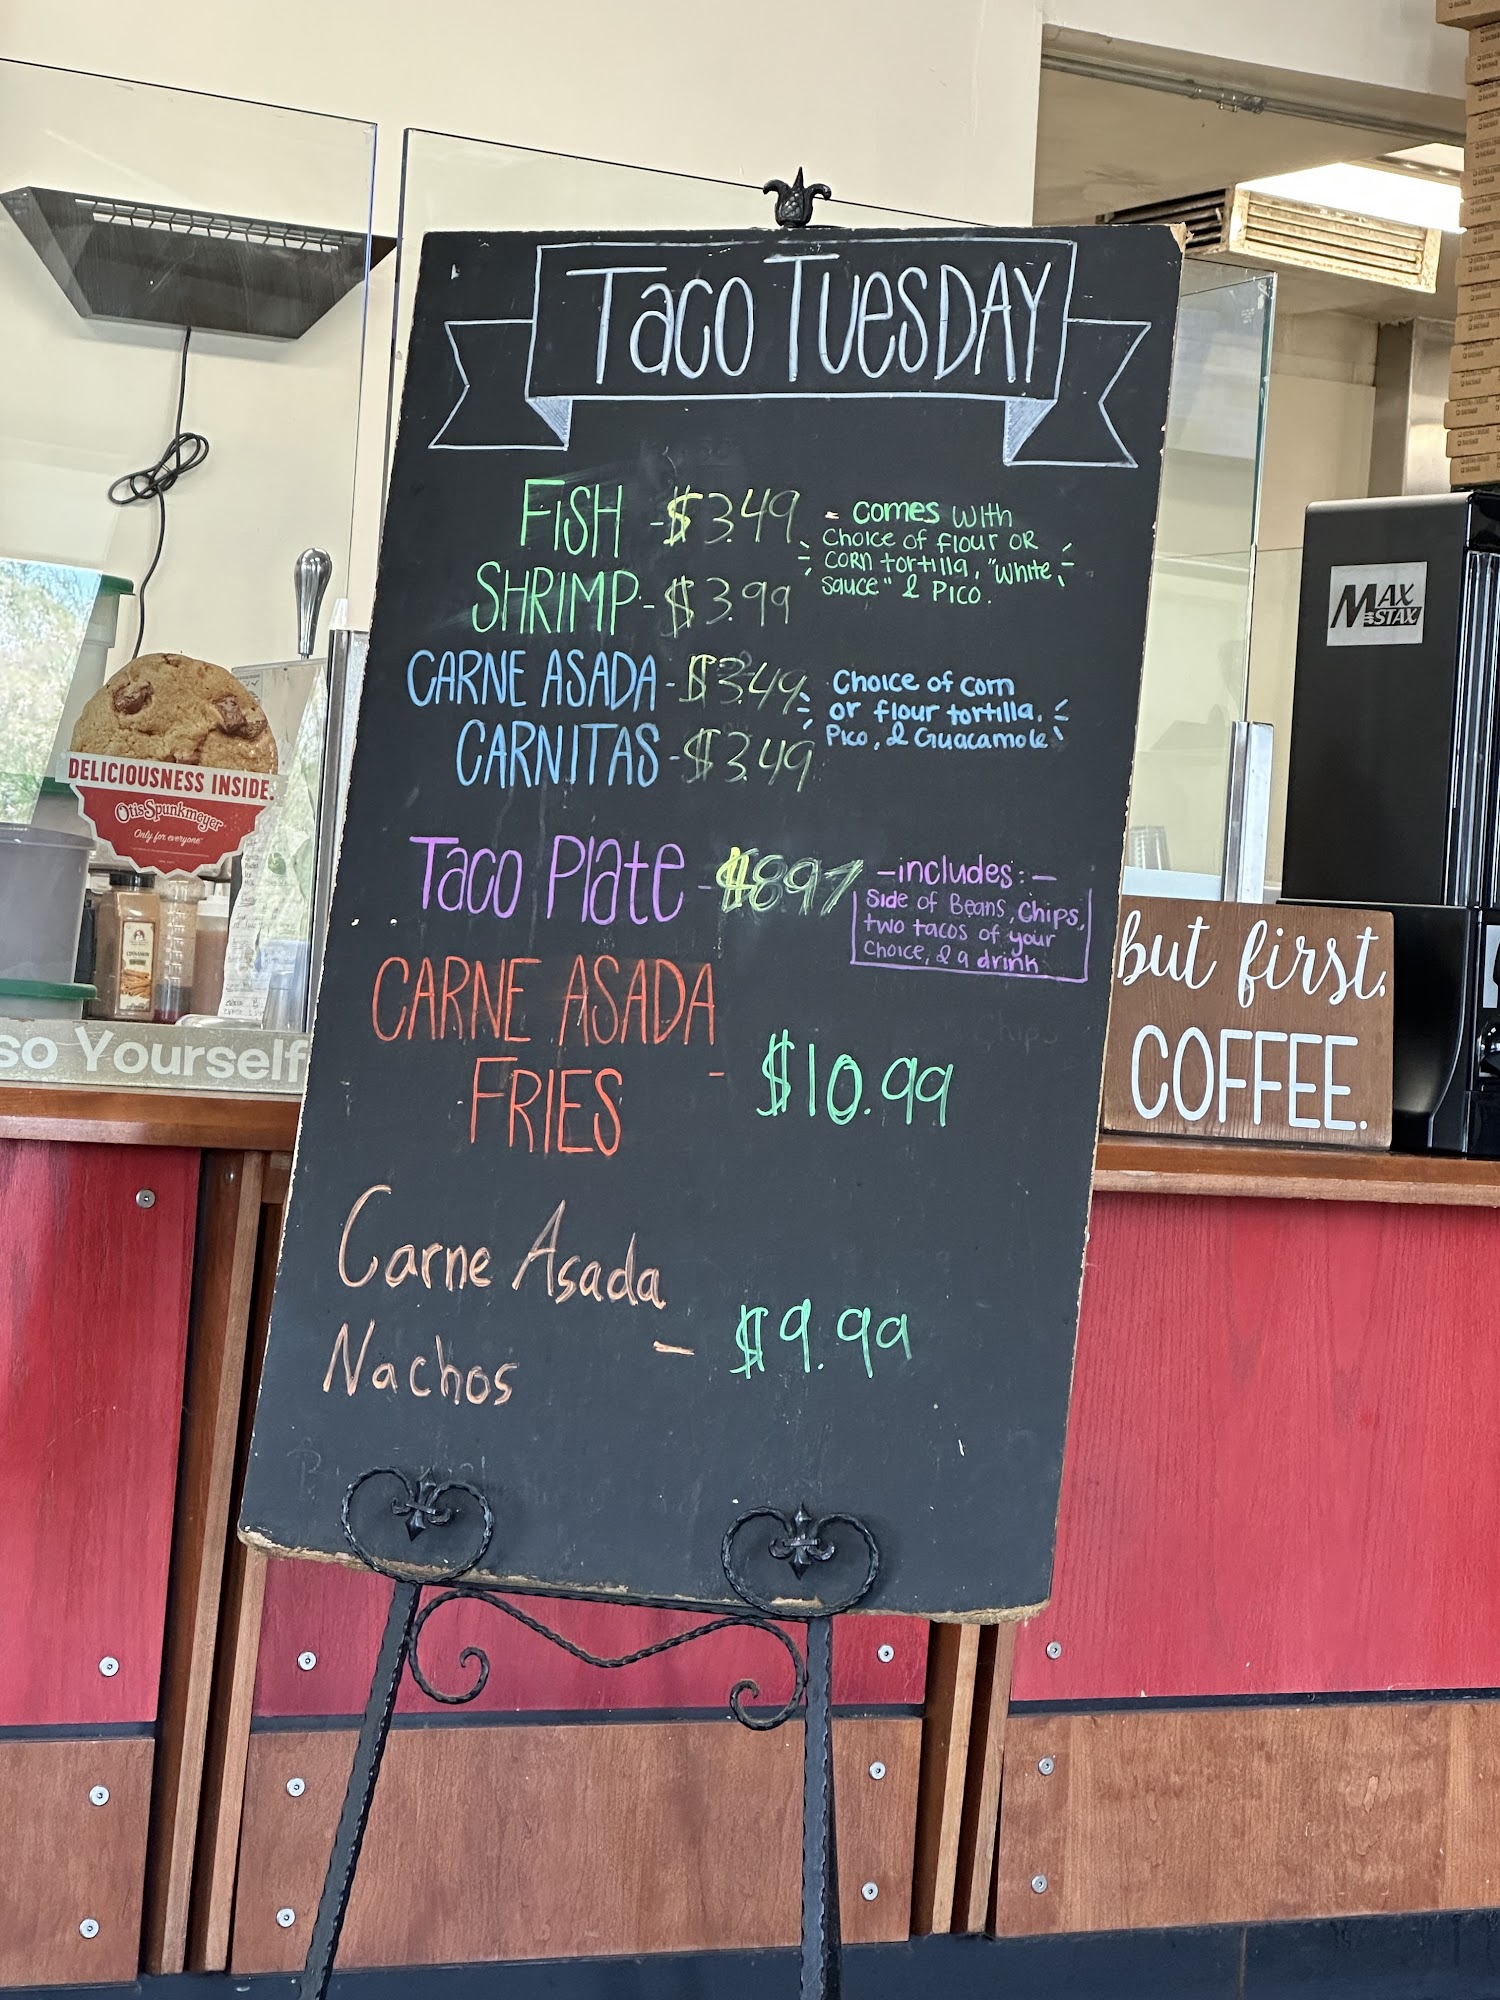 TACO TUESDAY
FISH - $3.49
SHRIMP - $3.99
- comes with
Choice of flour OR
corn tortilla, "White
sauce" & Pico.
CARNE ASADA - $3.49
CARNITAS - $3.49
Choice of corn
or flour tortilla,
Pico, & Guacamole
Taco Plate - $8.97
- includes: -
Side of Beans, Chips,
two tacos of your
Choice, & a drink
Chips
CARNE ASADA
FRIES - $10.99
Carne Asada
Nachos - $9.99
DELICIOUSNESS INSIDE.
Otis Spunkmeyer
Only for everyone
so Yourself
MAX
STAX
but first,
COFFEE.